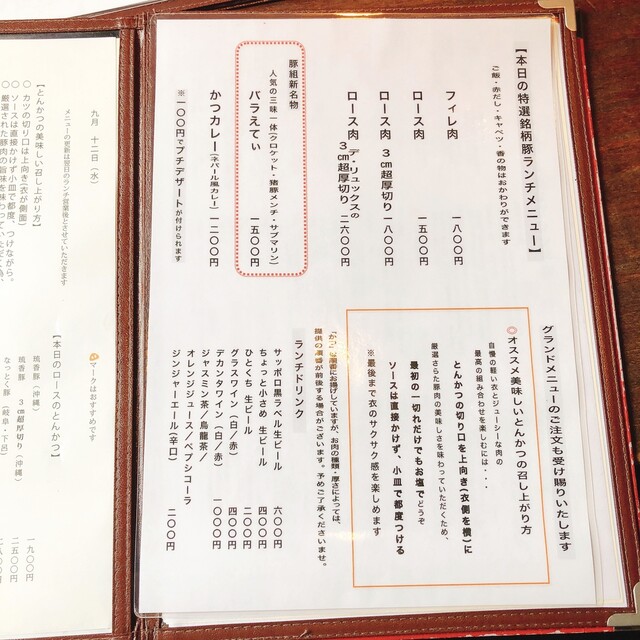 【本日の特選銘柄豚ランチメニュー】
ご飯・赤だし・キャベツ・香の物はおかわりができます
フィレ肉 一八〇〇円
ロース肉 一五〇〇円
ロース肉 3㎝超厚切り 一八〇〇円
ロース肉 デ・リュックスの 3㎝超厚切り 二六〇〇円
豚組新名物
人気の三味一体(クロケット・猪豚メンチ・サブマリン)
バラえてぃ 一五〇〇円
かつカレー(ネパール風カレー) 一二〇〇円
※一〇〇円でプチデザートが付けられます
グランドメニューのご注文も受け賜りいたします
◎オススメ美味しいとんかつの召し上がり方
自慢の軽い衣とジューシーな肉の
最高の組み合わせを楽しむには・・・
とんかつの切り口を上向き(衣側を横)に
厳選さらた豚肉の美味しさを味わっていただくため、
最初の一切れだけでもお塩でどうぞ
ソースは直接かけず、小皿で都度つける
※最後まで衣のサクサク感を楽しめます
お肉の種類・厚さによっては、
提供の順番が前後する場合がございます。予めご了承くださいませ。
ランチドリンク
サッポロ黒ラベル生ビール 六〇〇円
ちょっと小さめ 生ビール 四〇〇円
ひとくち 生ビール 二〇〇円
グラスワイン(白/赤) 四〇〇円
デカンタワイン(白/赤) 一〇〇〇円
ジャスミン茶/烏龍茶/
オレンジジュース/ペプシコーラ
ジンジャーエール(辛口) 二〇〇円
九月 十二日(水)
メニューの更新は翌日のランチ営業後とさせていただきます
【とんかつの美味しい召し上がり方】
○ カツの切り口は上向き(衣が側面)
○ ソースは直接かけず小皿で都度、つけながら。
○ 厳選された豚肉の旨味を味わっていただく為、
マークはおすすめです
【本日のロースのとんかつ】
琉香豚(沖縄) 一九〇〇円
琉香豚 3㎝超厚切り(沖縄) 二五〇〇円
なっとく豚(岐阜・下呂) 二八〇〇円